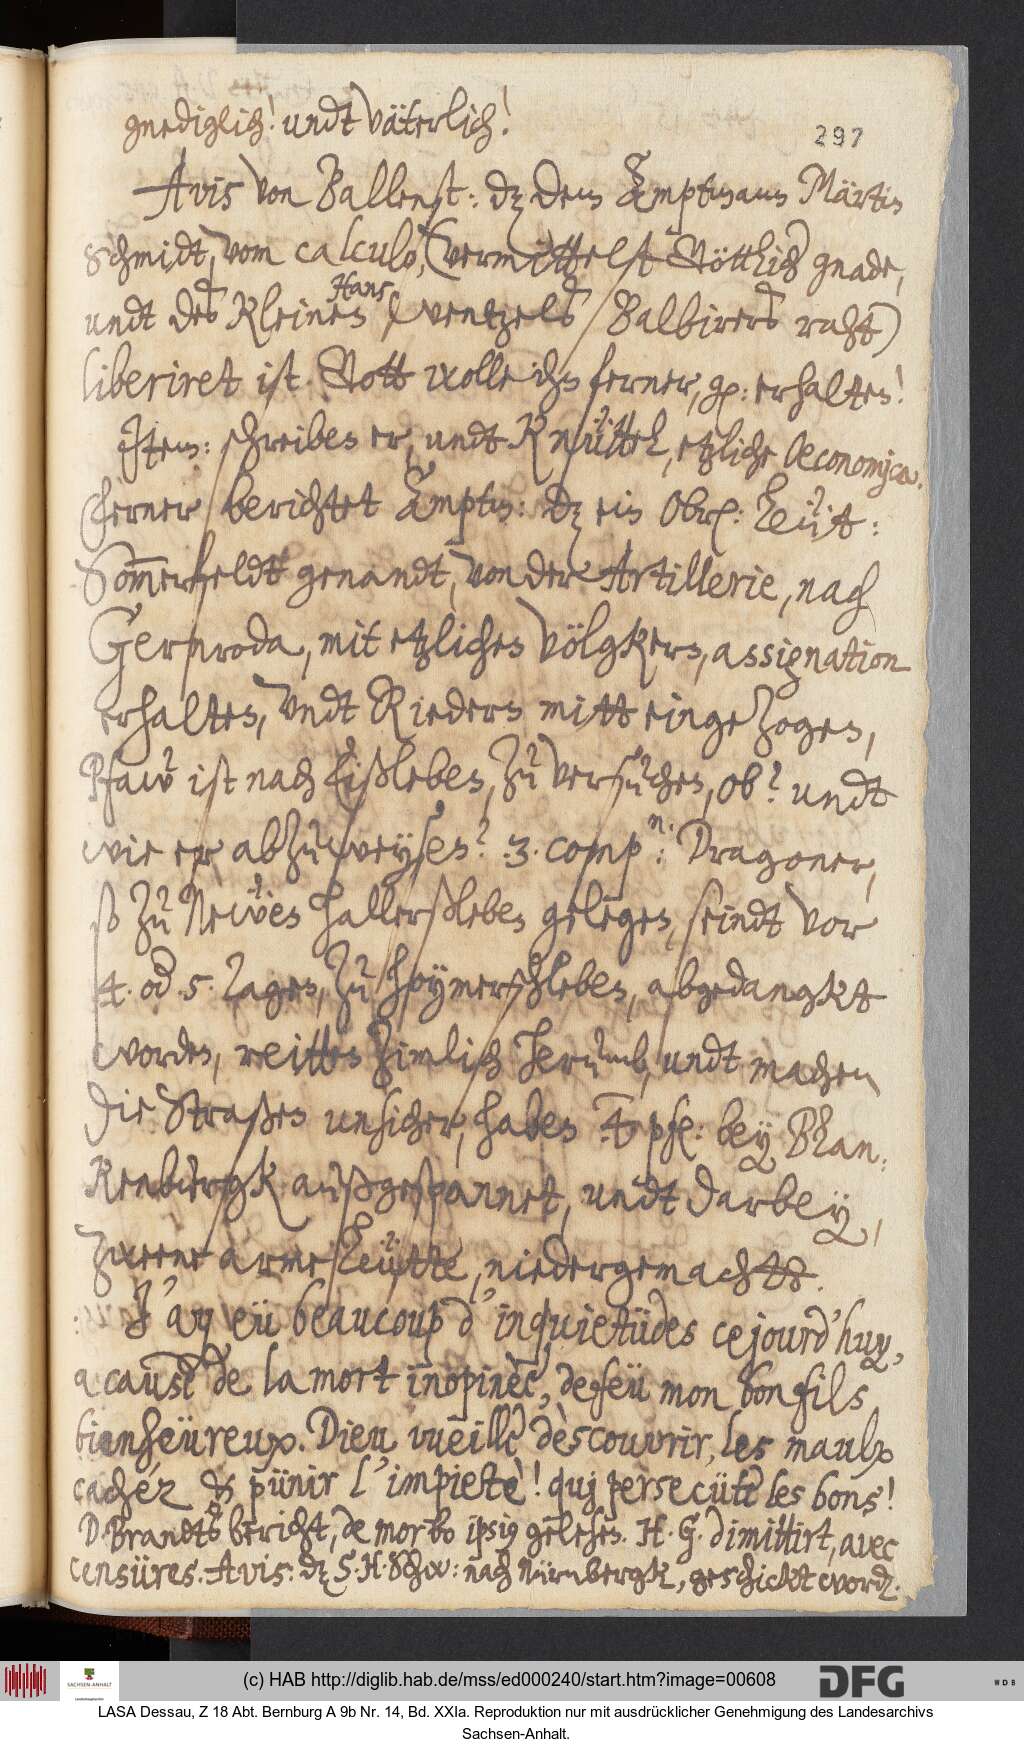 gnediglich! undt väterlich!
297
Avis von Ballenst: dz dem Amptmann Märtin
Schmidt, vom calculo, (vermittelst Göttlicher gnade,
Hans
undt des Kleinen Wentzels Balbirers raht)
liberiret ist. Gott wolle ihn ferner, gn: erhalten!
Item: schreiben er, undt Knüttel, etzliche Oeconomica.
Ferner berichtet Amptm: dz ein Obr: Leüt:
Sommerfeldt genandt, von der Artillerie, nach
Gernroda, mit etzlichen Völgkern, assignation
erhalten, Vndt Riedern mitt eingezogen,
Pfaw ist nach Eißleben, zu versuchen, ob? undt
wie er abzuweysen? 3. comp.n: Dragoner,
so zu Newen Hallerßleben gelegen, seindt vor
4. od 5. Tagen, zu Hoymerschleben, abgedangkt
worden, reitten zimlich herumb, undt machen
die Straßen unsicher, haben 4 pf: bey Blan-
kenburgk außgespannet, undt darbey,
zweene arme Leütte, niedergemachtt.
J'ay eü beaucoup d'inquietüdes cejourd'huy,
a causé de la mort inopinèe, de feü mon bon fils
bienheüreux. Dieu vueille dèscouvrir, les maulx
cachèz & pünir l'impietè! quj persecüte les bons!
D. Brandts bericht, de morbo ipsius gelesen. H. G. dimittirt, avec
censüres. Avis: dz S. H. Schw: nach Nürnbergk, geschickt word.
(c) HAB http://diglib.hab.de/mss/ed000240/start.htm?image=00608
SACHSEN-ANHALT
DFG
WDB
LASA Dessau, Z 18 Abt. Bernburg A 9b Nr. 14, Bd. XXIa. Reproduktion nur mit ausdrücklicher Genehmigung des Landesarchivs
Sachsen-Anhalt.